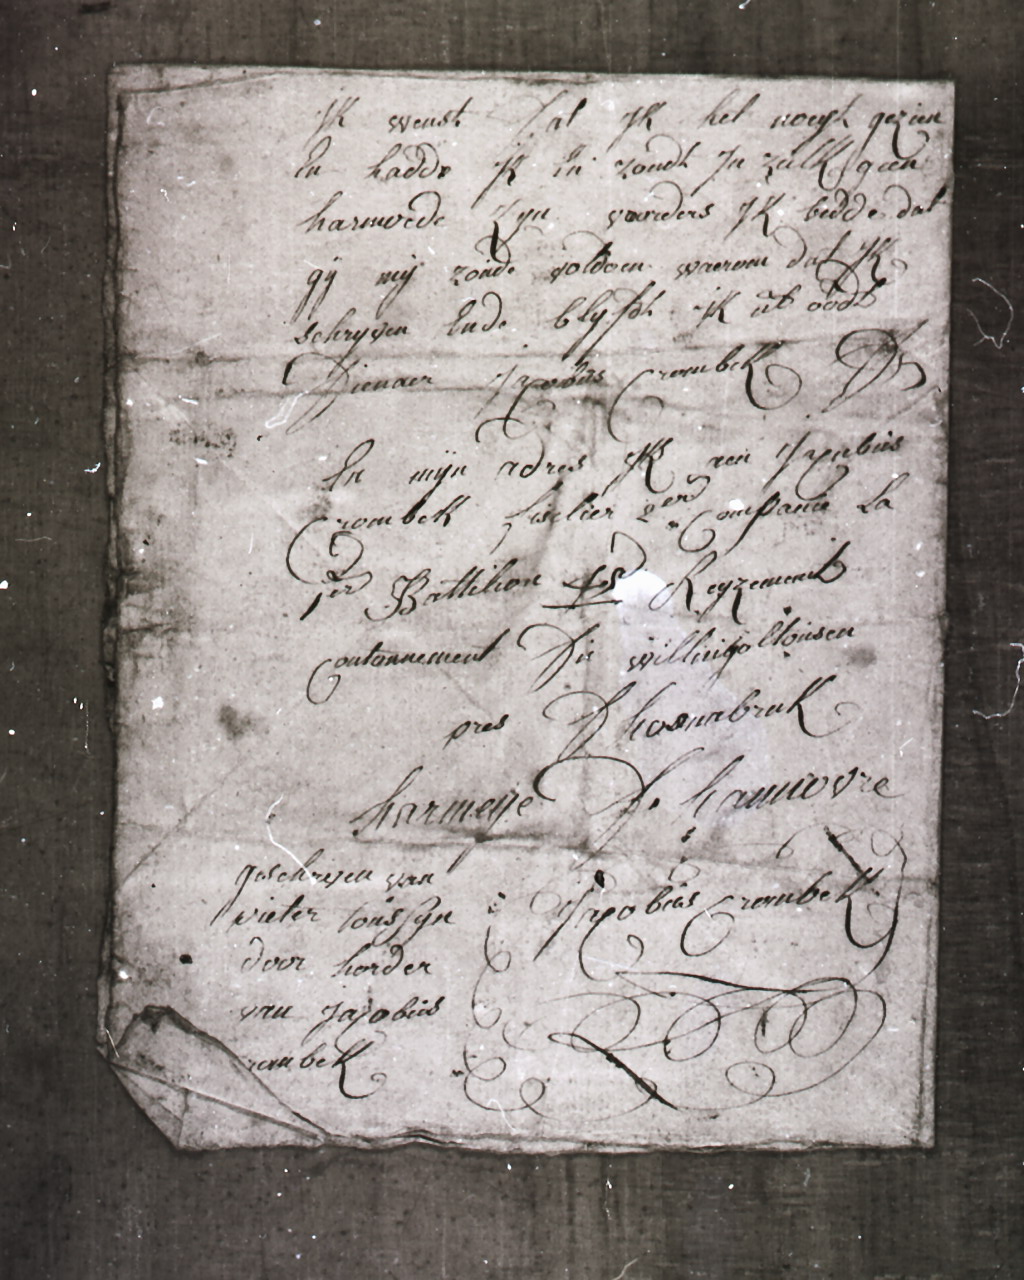 Ik wenst dat Ik het noeyt gezien
En hadde Ik En zoude In zulk geen
harmoede zyn voorders Ik bidde dat
gij mij zoude voldoen waervan dat Ik
schryven Ende blyfde Ik
Dienaer Jacobus Crombek
En mijn adres Ik aen Jacobus
Crombek fuselier 2er Companie La
1er Battilion Regzement
Contonnement Die
pres D hosnabruk
harmeije De hannovre
geschreven van
pieter
door horder
van Jacobus
rombek
Jacobus Crombek